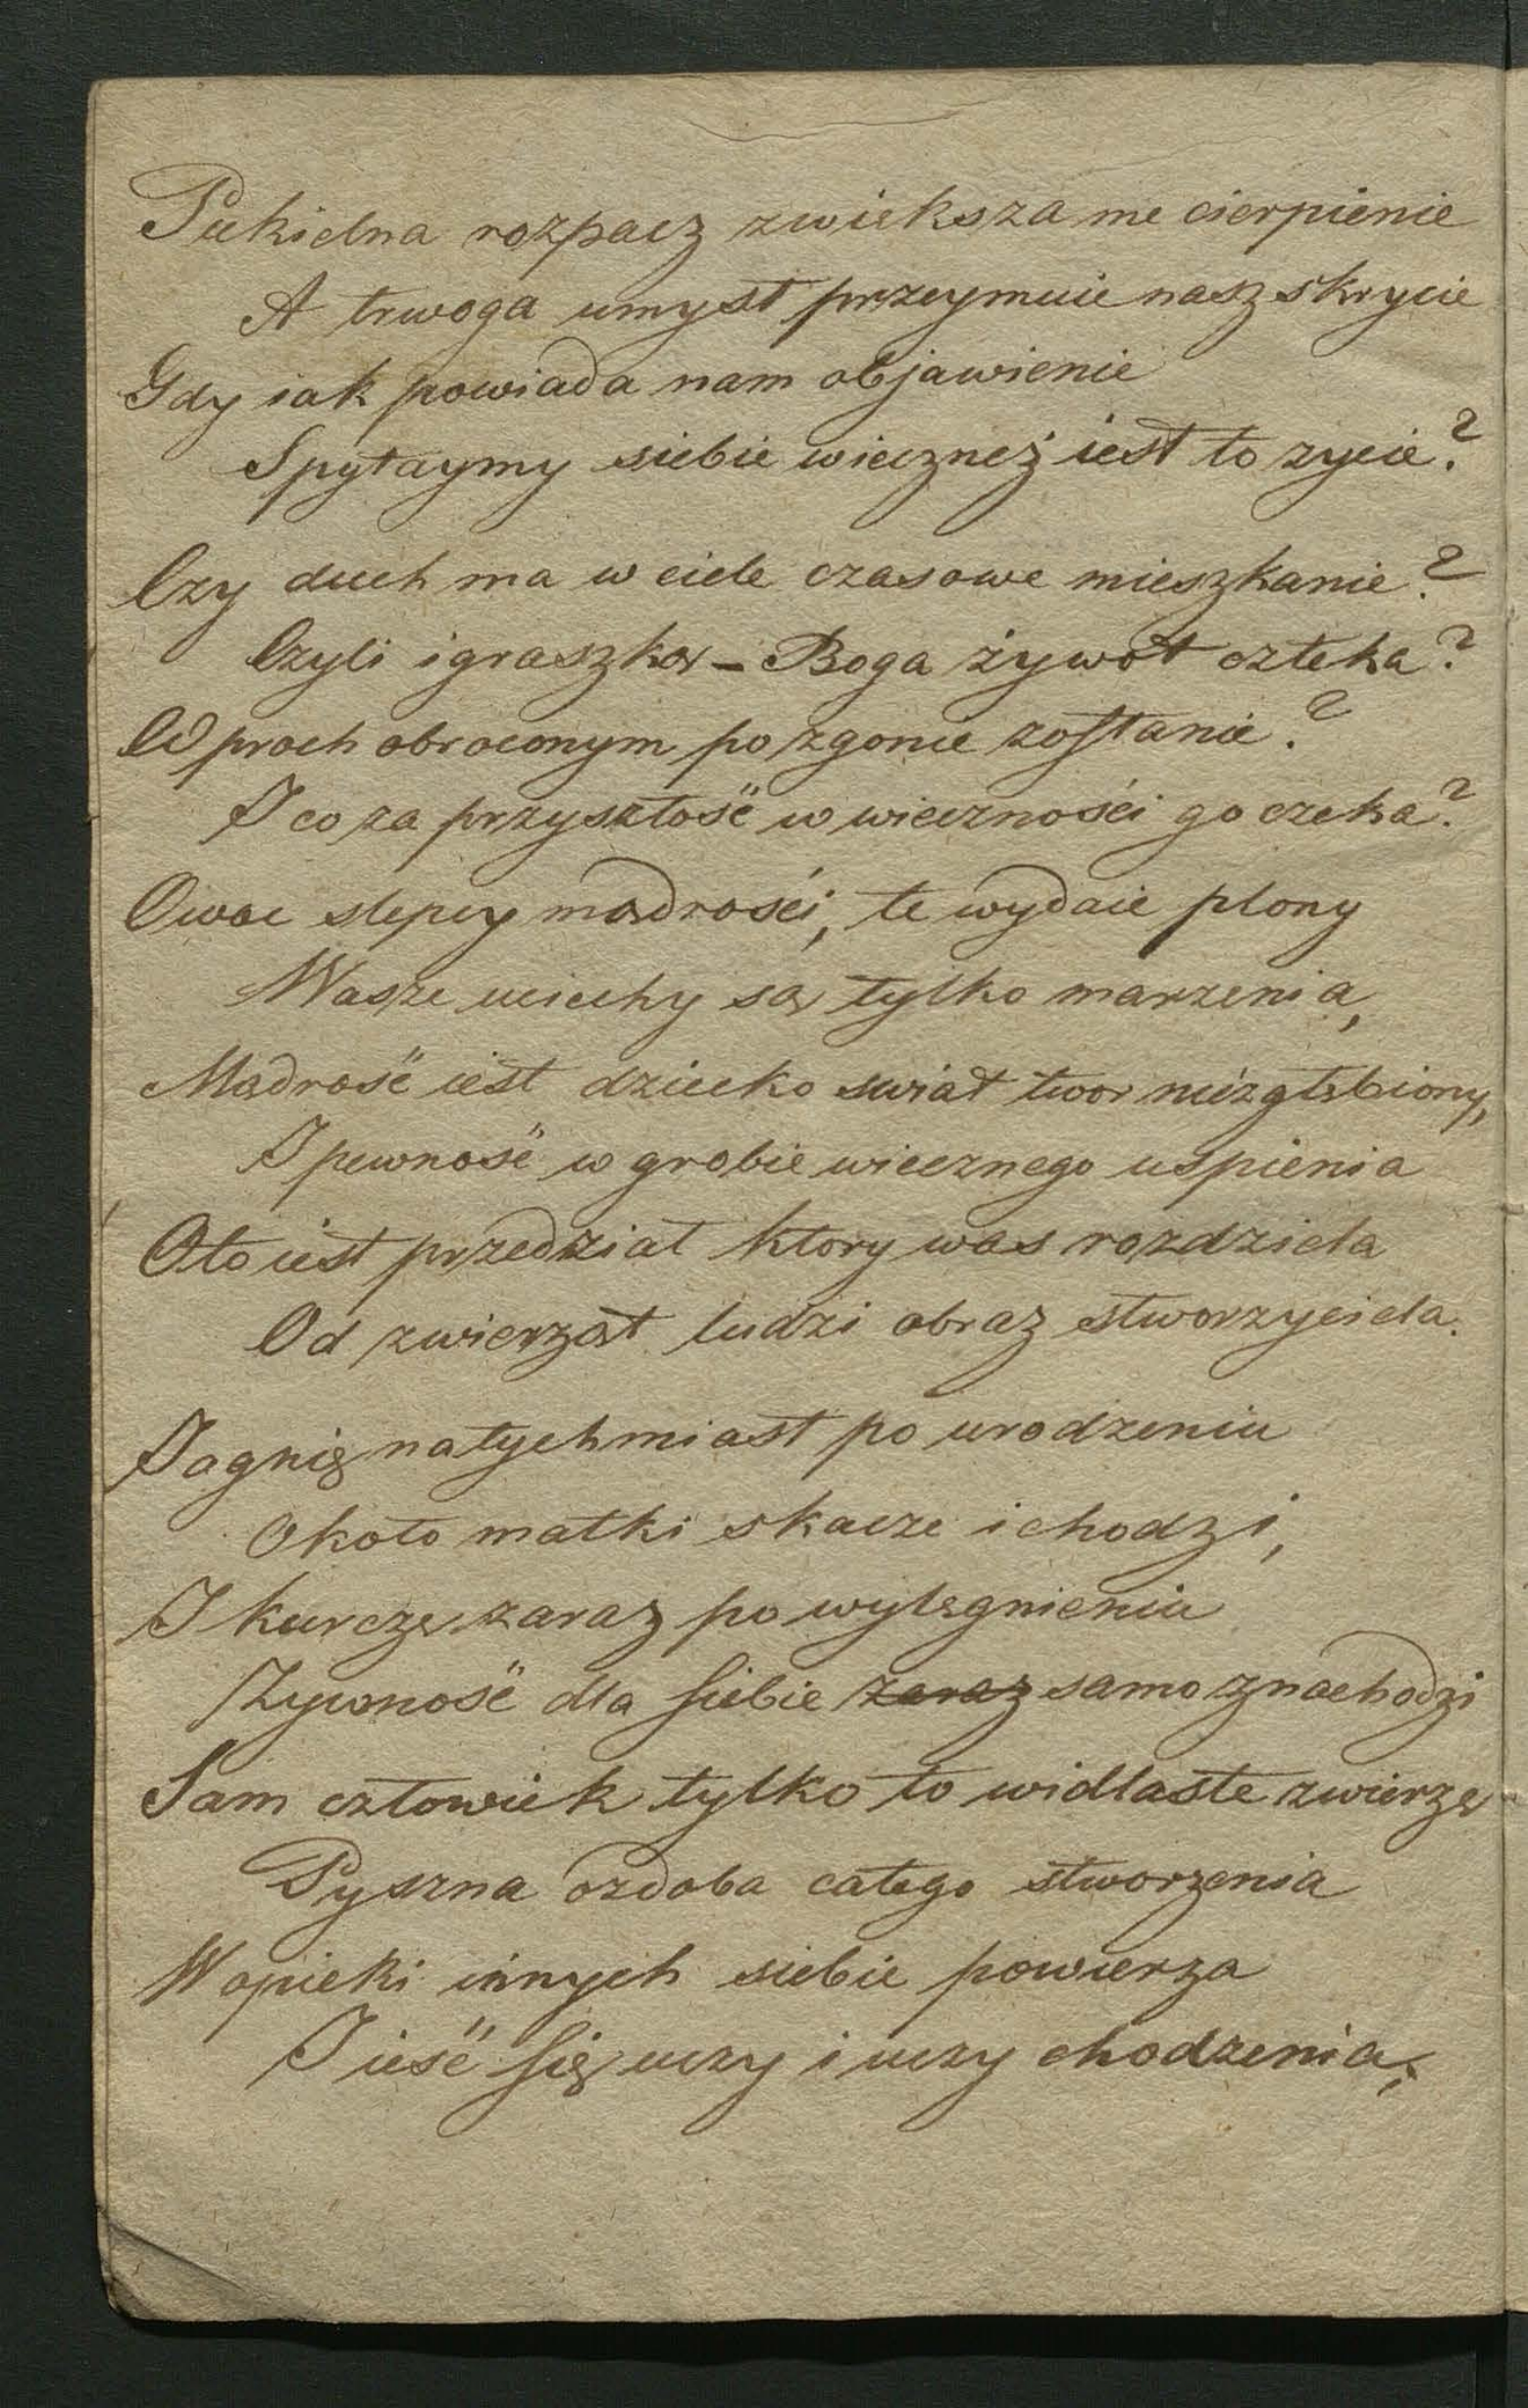 Piekielna rozpacz zwieksza me cierpienie
A trwoga umysł przeymuie nasz skrycie
Gdy iak powiada nam objawienie
Spytaymy siebie wiecneż iest to zycie?
Czy duch ma w ciele czasowe mieszkanie?
Czyli igraszką – Boga żywot człeka?
W proch obroconym po zgonie zostanie?
I co za przyszłość w wieczności go czeka?
Owoc slepey mądrości, te wydaie plony
Wasze uciechy są tylko marzenia,
Mądrość iest dziecko swiat twor niezgłębiony,
I pewność w grobie wiecznego uspienia
Oto iest przedział ktory was rozdziela
Od zwierząt ludzi obraz stworzyciela.
Jagnię natychmiast po urodzeniu
Około matki skacze i chodzi,
I kurczę zaraz po wylęgnieniu
Zywność dla siebie zaraz samo znachodzi
Sam człowiek tylko to widlaste zwierzę
Pyszna ozdoba całego stworzenia
W opieki innych siebie powierza
I ieść się uczy i uczy chodzenia,